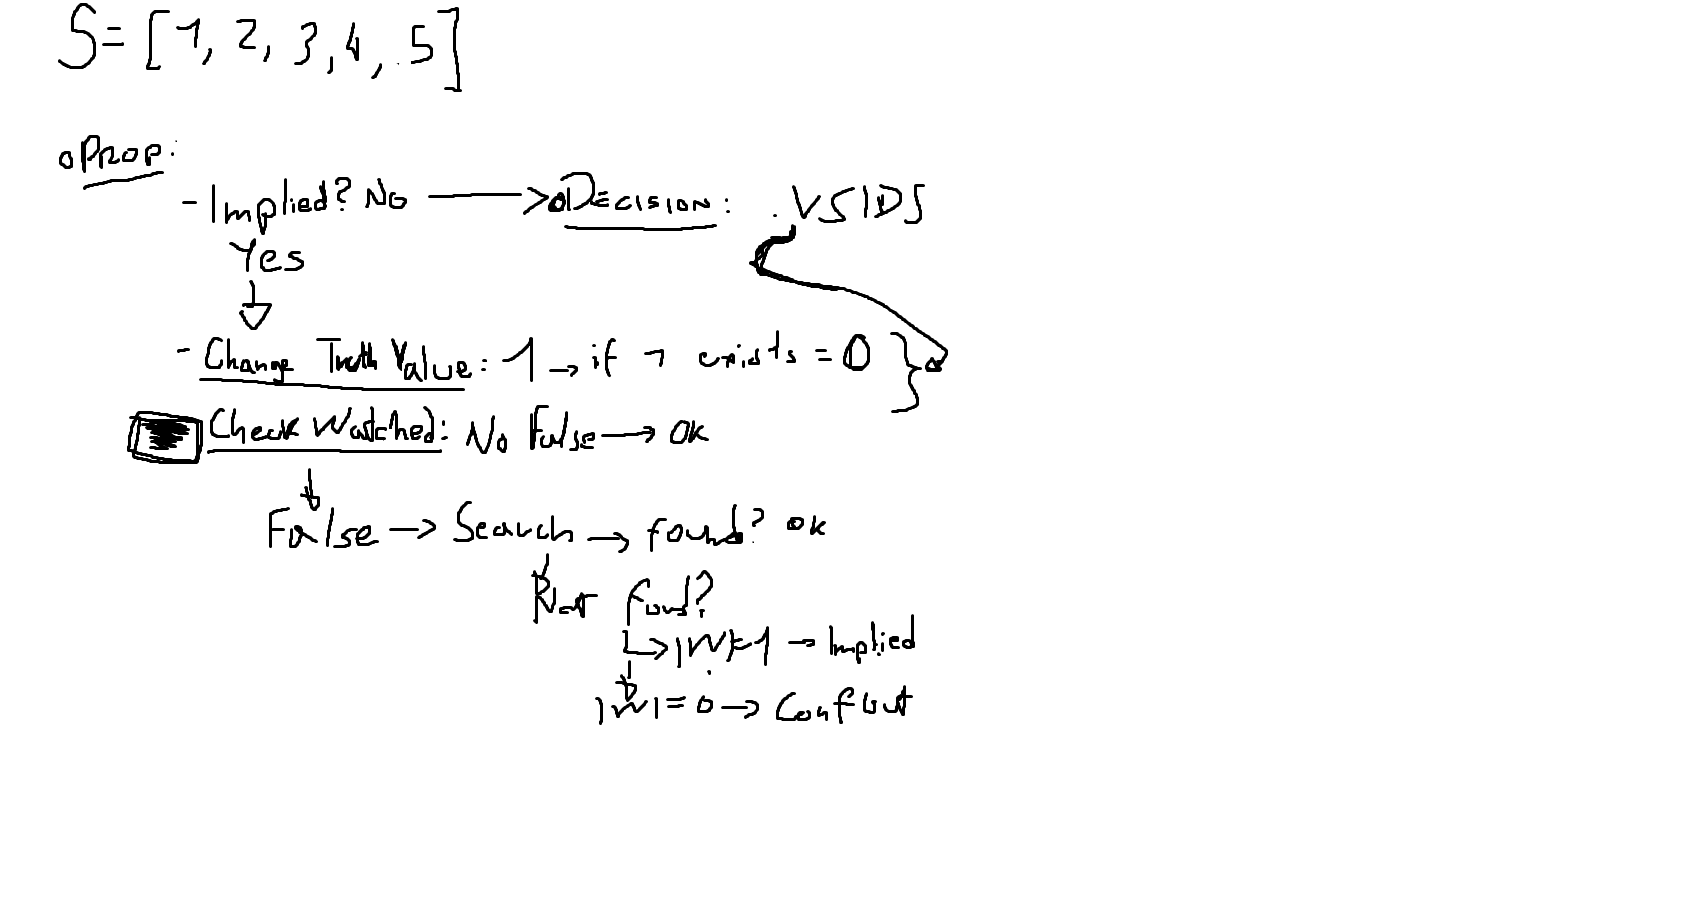 S = [1, 2, 3, 4, 5]
o Prop:
- Implied? No → o Decision: VSIDS
Yes
↓
- Change Truth Value: 1 → if ¬ exists = 0 }
Check Watched: No False → OK
↓
False → Search → found? ok
Not found?
↳ |W|=1 → Implied
↓
|W| = 0 → Conflict